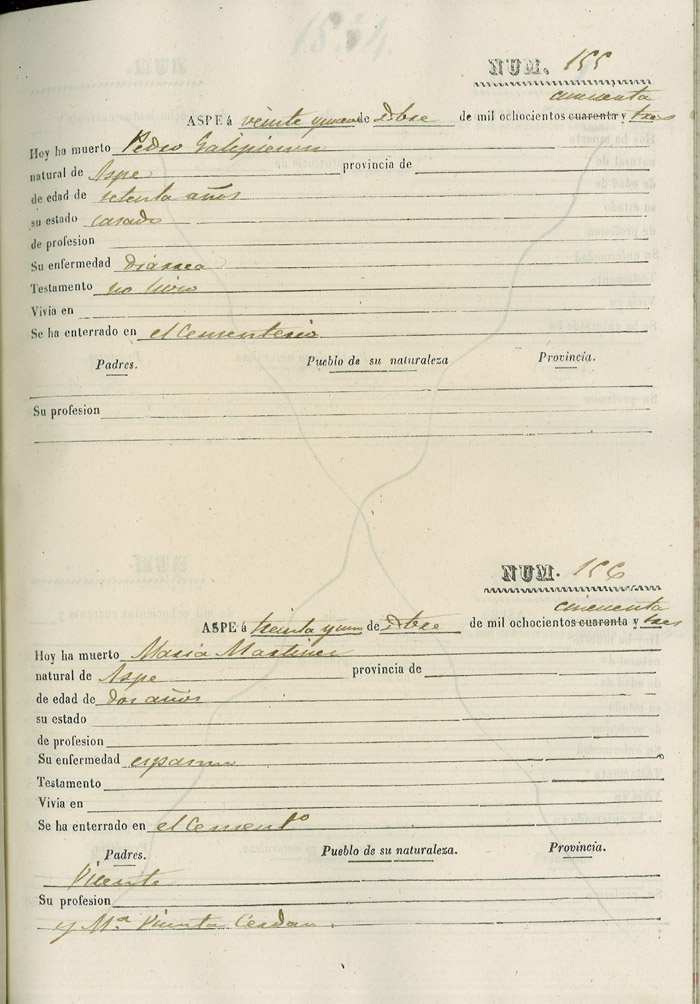 1854.
NUM. 155
cincuenta
ASPE á veinte y nueve de Dbre de mil ochocientos cuarenta y tres
Hoy ha muerto Pedro Galipienso
natural de Aspe provincia de
de edad de setenta años
su estado casado
de profesion
Su enfermedad diarrea
Testamento no hizo
Vivia en
Se ha enterrado en el Cementerio
Padres. Pueblo de su naturaleza Provincia.
Su profesion
NUM. 156
cincuenta
ASPE á treinta y uno de Dbre de mil ochocientos cuarenta y tres
Hoy ha muerto Maria Martinez
natural de Aspe provincia de
de edad de dos años
su estado
de profesion
Su enfermedad espasmo
Testamento
Vivia en
Se ha enterrado en el Cementº
Padres. Pueblo de su naturaleza. Provincia.
Vicente
Su profesion
y Mª Vicenta Cerdan.